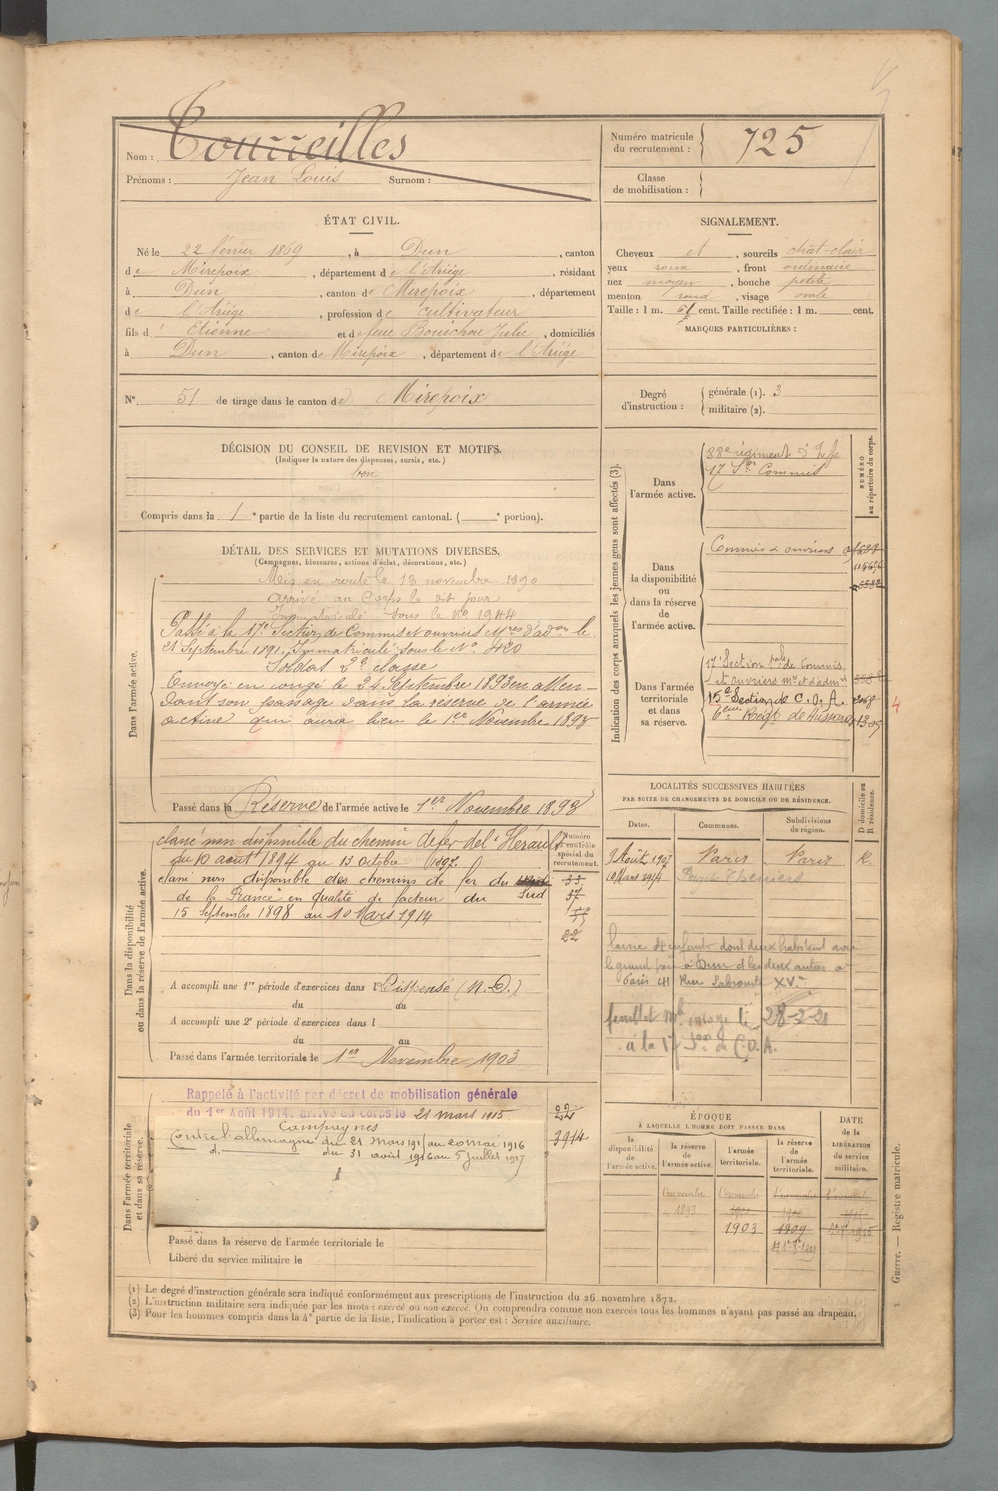 Nom : Tourreilles
Prénoms : Jean Louis Surnom :
Numéro matricule du recrutement : 725
Classe de mobilisation :
ÉTAT CIVIL.
Né le 22 février 1869, à Dun, canton
de Mirepoix, département de l'Ariège, résidant
à Dun, canton de Mirepoix, département
de l'Ariège, profession de cultivateur
fils d'Etienne et de feue Bouichou Julie, domiciliés
à Dun, canton de Mirepoix, département de l'Ariège
N° 51 de tirage dans le canton de Mirepoix
SIGNALEMENT.
Cheveux et, sourcils chat-clair
yeux roux, front ordinaire
nez moyen, bouche petite
menton rond, visage ovale
Taille : 1 m. 61 cent. Taille rectifiée : 1 m. cent.
MARQUES PARTICULIÈRES :
Degré d'instruction : générale (1). 3
militaire (2).
DÉCISION DU CONSEIL DE REVISION ET MOTIFS.
(Indiquer la nature des dispenses, sursis, etc.)
bon
Compris dans la 1e partie de la liste du recrutement cantonal. ( e portion).
DÉTAIL DES SERVICES ET MUTATIONS DIVERSES.
(Campagnes, blessures, actions d'éclat, décorations, etc.)
Dans l'armée active.
Mis en route le 13 novembre 1890
arrivé au Corps le dit jour
Immatriculé sous le No 1944
Passé à la 17e Section de Commis et ouvriers Mres d'adon le
21 Septembre 1891. Immatriculé sous le No. 420
Soldat 2e classe
Envoyé en congé le 24 Septembre 1893 en atten-
dant son passage dans la réserve de l'armée
active qui aura lieu le 1er Novembre 1893
Passé dans la Réserve de l'armée active le 1er Novembre 1893
Dans la disponibilité ou dans la réserve de l'armée active.
Numéro au contrôle spécial du recrutement.
classé non disponible du chemin de fer de l'Hérault
du 10 août 1894 au 13 octobre 1897.
classé non disponible des chemins de fer du Sud
de la France en qualité de facteur du
15 Septembre 1898 au 10 Mars 1914
33
37
22
A accompli une 1re période d'exercices dans l Dispensé (N.D.)
du au
A accompli une 2e période d'exercices dans l
du au
Passé dans l'armée territoriale le 1er Novembre 1903
Dans l'armée territoriale et dans sa réserve.
Rappelé à l'activité par décret de mobilisation générale
du 1er Août 1914. arrivé au corps le 21 mars 1915
22
3914
Campagnes
Contre l'allemagne du 21 mars 191 au 20 mai 1916
d. du 31 août 1916 au 5 juillet 1917
Passé dans la réserve de l'armée territoriale le
Libéré du service militaire le
Indication des corps auxquels les jeunes gens sont affectés (3).
NUMÉRO au répertoire du corps.
Dans l'armée active.
88e régiment d'Infie
17 Son Commis
Dans la disponibilité ou dans la réserve de l'armée active.
Commis & ouvriers
Dans l'armée territoriale et dans sa réserve.
17 Section role de Commis
et ouvriers mres et d'admon
15e Section de C. O. A.
6eme Régt de Hussards
1305
4
LOCALITÉS SUCCESSIVES HABITÉES
PAR SUITE DE CHANGEMENTS DE DOMICILE OU DE RÉSIDENCE.
Dates. Communes. Subdivisions de région. D domicile ou R résidence.
9 Août 1907 Paris Paris R.
10 Mars 1914 Puget Théniers
laisse 4 enfants dont deux habitent avec
le grand père à Dun et les deux autres à
Paris 41 Rue Labrouste XV.
feuillet mle envoyé le 28-2-21
à la 17 Son de C.O.A.
ÉPOQUE
À LAQUELLE L'HOMME DOIT PASSER DANS
la disponibilité de l'armée active.
la réserve de l'armée active.
l'armée territoriale.
la réserve de l'armée territoriale.
DATE de la LIBÉRATION du service militaire.
1 novembre 1893
1 novembre 1903
1 novembre 1909
(1) Le degré d'instruction générale sera indiqué conformément aux prescriptions de l'instruction du 26 novembre 1872.
(2) L'instruction militaire sera indiquée par les mots : exercé ou non exercé. On comprendra comme non exercés tous les hommes n'ayant pas passé au drapeau.
(3) Pour les hommes compris dans la 4e partie de la liste, l'indication à porter est : Service auxiliaire.
Guerre. — Registre matricule.